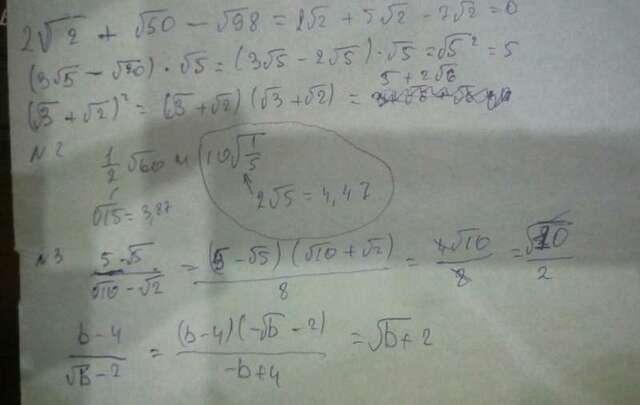 2√2 + √50 − √98 = 2√2 + 5√2 − 7√2 = 0
(3√5 − √20) · √5 = (3√5 − 2√5) · √5 = √5² = 5
(√3 + √2)² = (√3 + √2) (√3 + √2) = 5 + 2√6
N 2
1/2 √60 и 10√1/5
√15 = 3,87 2√5 = 4,47
N 3
5 − √5 / √10 − √2 = (5 − √5) (√10 + √2) / 8 = 4√10 / 8 = √10 / 2
b − 4 / √b − 2 = (b − 4) (−√b − 2) / −b + 4 = √b + 2